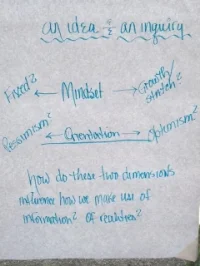 an idea & an inquiry
Fixed? ← Mindset → Growth/
stretch?
Pessimism? ← Orientation → Optemism?
how do these two dimensions
influence how we make use of
information? of realities?